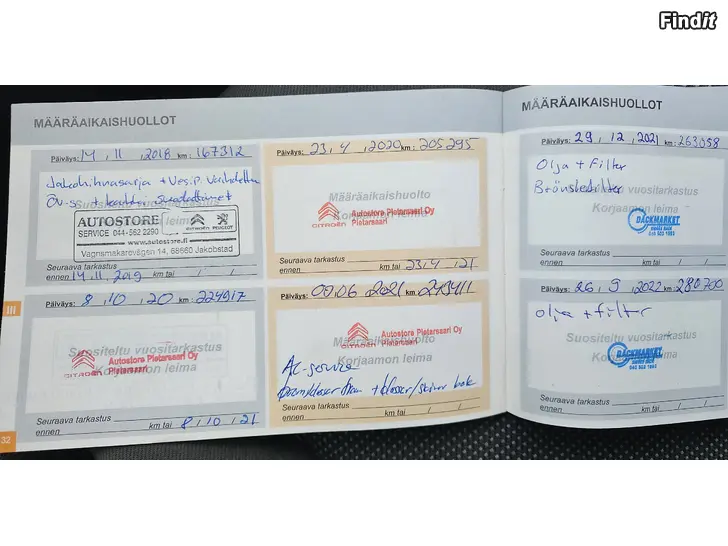 Findit
MÄÄRÄAIKAISHUOLLOT
Päiväys: 14 , 11 , 2018 km: 167312
Jakohihnasarja + Ves.P. Vaihdettu
AUTOSTORE
SERVICE 044-562 2290
www.autostore.fi
CITROËN PEUGEOT
Vagnsmakarevägen 14, 68660 Jakobstad
Seuraava tarkastus
ennen 14.11.2019 km tai / /
Päiväys: 23 , 4 , 2020 km: 205295
Määräaikaishuolto
Korjaamon leima
CITROËN
Autostore Pietarsaari Oy
Pietarsaari
Seuraava tarkastus
ennen km tai 23/4 , 21
III
Päiväys: 8 , 10 , 20 km: 224917
Suositeltu vuositarkastus
Korjaamon leima
CITROËN
Autostore Pietarsaari Oy
Pietarsaari
Seuraava tarkastus
ennen km tai 8 , 10 , 21
32
Päiväys: 09.06 2021 km:
Määräaikaishuolto
Korjaamon leima
CITROËN
Autostore Pietarsaari Oy
Pietarsaari
AC-service
+ klossar/skivor bak
Seuraava tarkastus
ennen km tai / /
MÄÄRÄAIKAISHUOLLOT
Päiväys: 29 , 12 , 2021 km: 263058
Olja + Filter
Bränslefilter
vuositarkastus
Korjaamon leima
BÄCKMARKET
Seuraava tarkastus
ennen km tai / /
Päiväys: 26 , 9 , 2022 km: 280700
olja + filter
Suositeltu vuositarkastus
Korjaamon leima
BÄCKMARKET
Seuraava tarkastus
ennen km tai / /